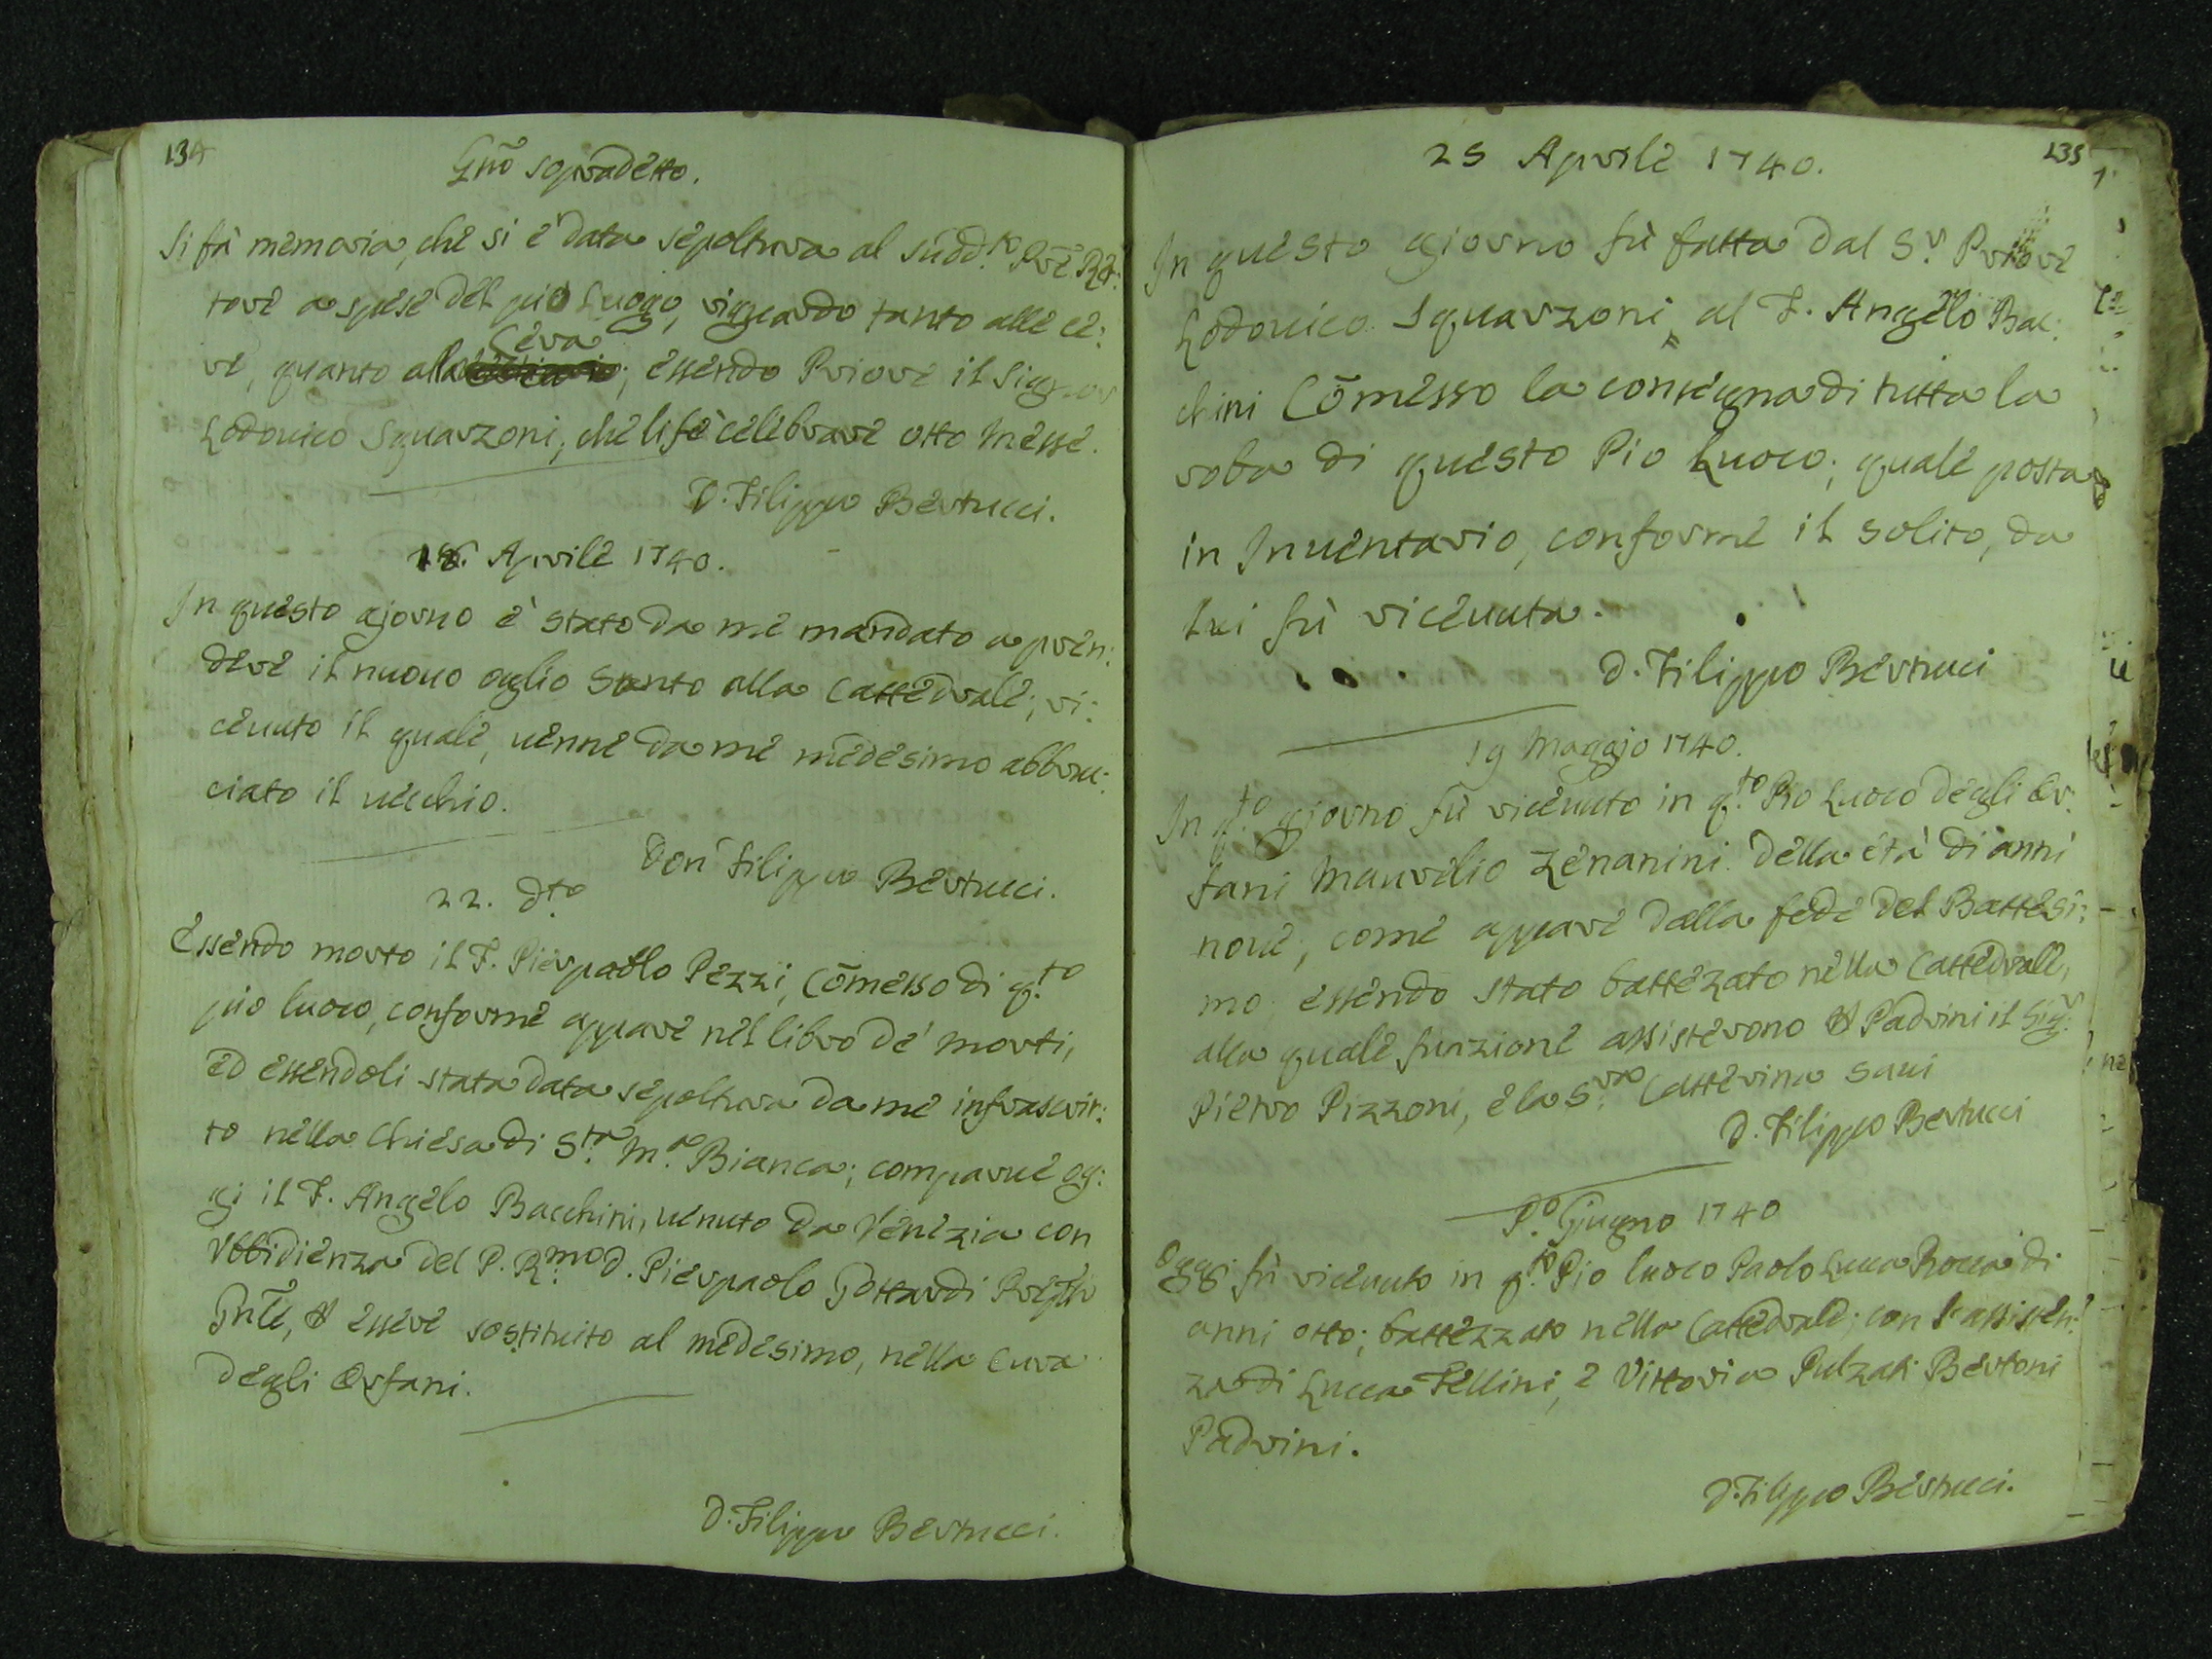 134
Gno sopradetto.
Si fà memoria, che si è data sepoltura al sudd.to Pre Ret:
tore a spese del pio Luogo, riguardo tanto alle ce:
Cera
re, quanto alla ; essendo Priore il Signor
Lodouico Squarzoni, che li fè celebrare otto Messe.
D. Filippo Bertucci.
Aprile 1740.
In questo giorno è stato da me mandato a pren:
dere il nuouo oglio Santo alla Cattedrale; ri:
ceuuto il quale, uenne da me medesimo abbru:
ciato il uecchio.
Don Filippo Bertucci.
22. d.to
Essendo morto il F. Pierpaolo Pezzi, Comesso di q.to
pio luoco, conforme appare nel libro de' Morti,
ed essendoli stata data sepoltura da me infrascrit:
to nella Chiesa di S.ta M.a Bianca; comparue og:
gi il F. Angelo Bacchini, uenuto da Venezia con
Vbbidienza del P. R.mo D. Pierpaolo Gottardi
Gnle, essere sostituito al medesimo, nella Cura
degli Orfani.
D. Filippo Bertucci.
135
25 Aprile 1740.
In questo giorno fù fatta dal S.r Priore
Lodouico Squarzoni, al F. Angelo Bac:
chini Comesso la consegna di tutta la
roba di questo Pio Luoco; quale posta
in Inuentario, conforme il solito, da
lui fù riceuuta.
D. Filippo Bertucci
19 Maggio 1740.
In q.to giorno fù riceuuto in q.to Pio Luoco degli Or:
fani Maurelio Zenanini della età di anni
noue, come appare dalla fede del Battesi:
mo, essendo stato battezato nella Cattedrale,
alla quale funzione assisterono Padrini il Sig.r
Pietro Pizzoni, e la S.ra Catterina Saui
D. Filippo Bertucci
P.o Giugno 1740
Oggi fù riceuuto in q.to Pio luoco Paolo Luca Rocca di
anni otto; battezzato nella Cattedrale; con l'assisten:
za di Lucca Fellini, e Vittoria Pulzati Bertoni
Padrini.
D. Filippo Bertucci.